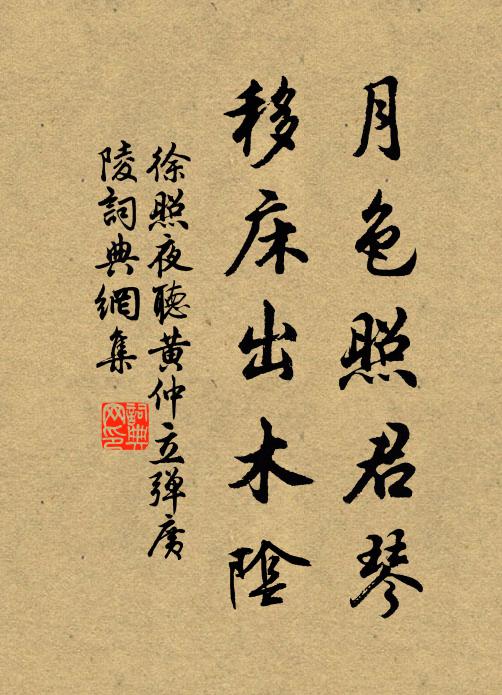 月色照君琴
移床出木陰
徐照夜聽黄仲立弹廣
陵詞典網集
詞典网印